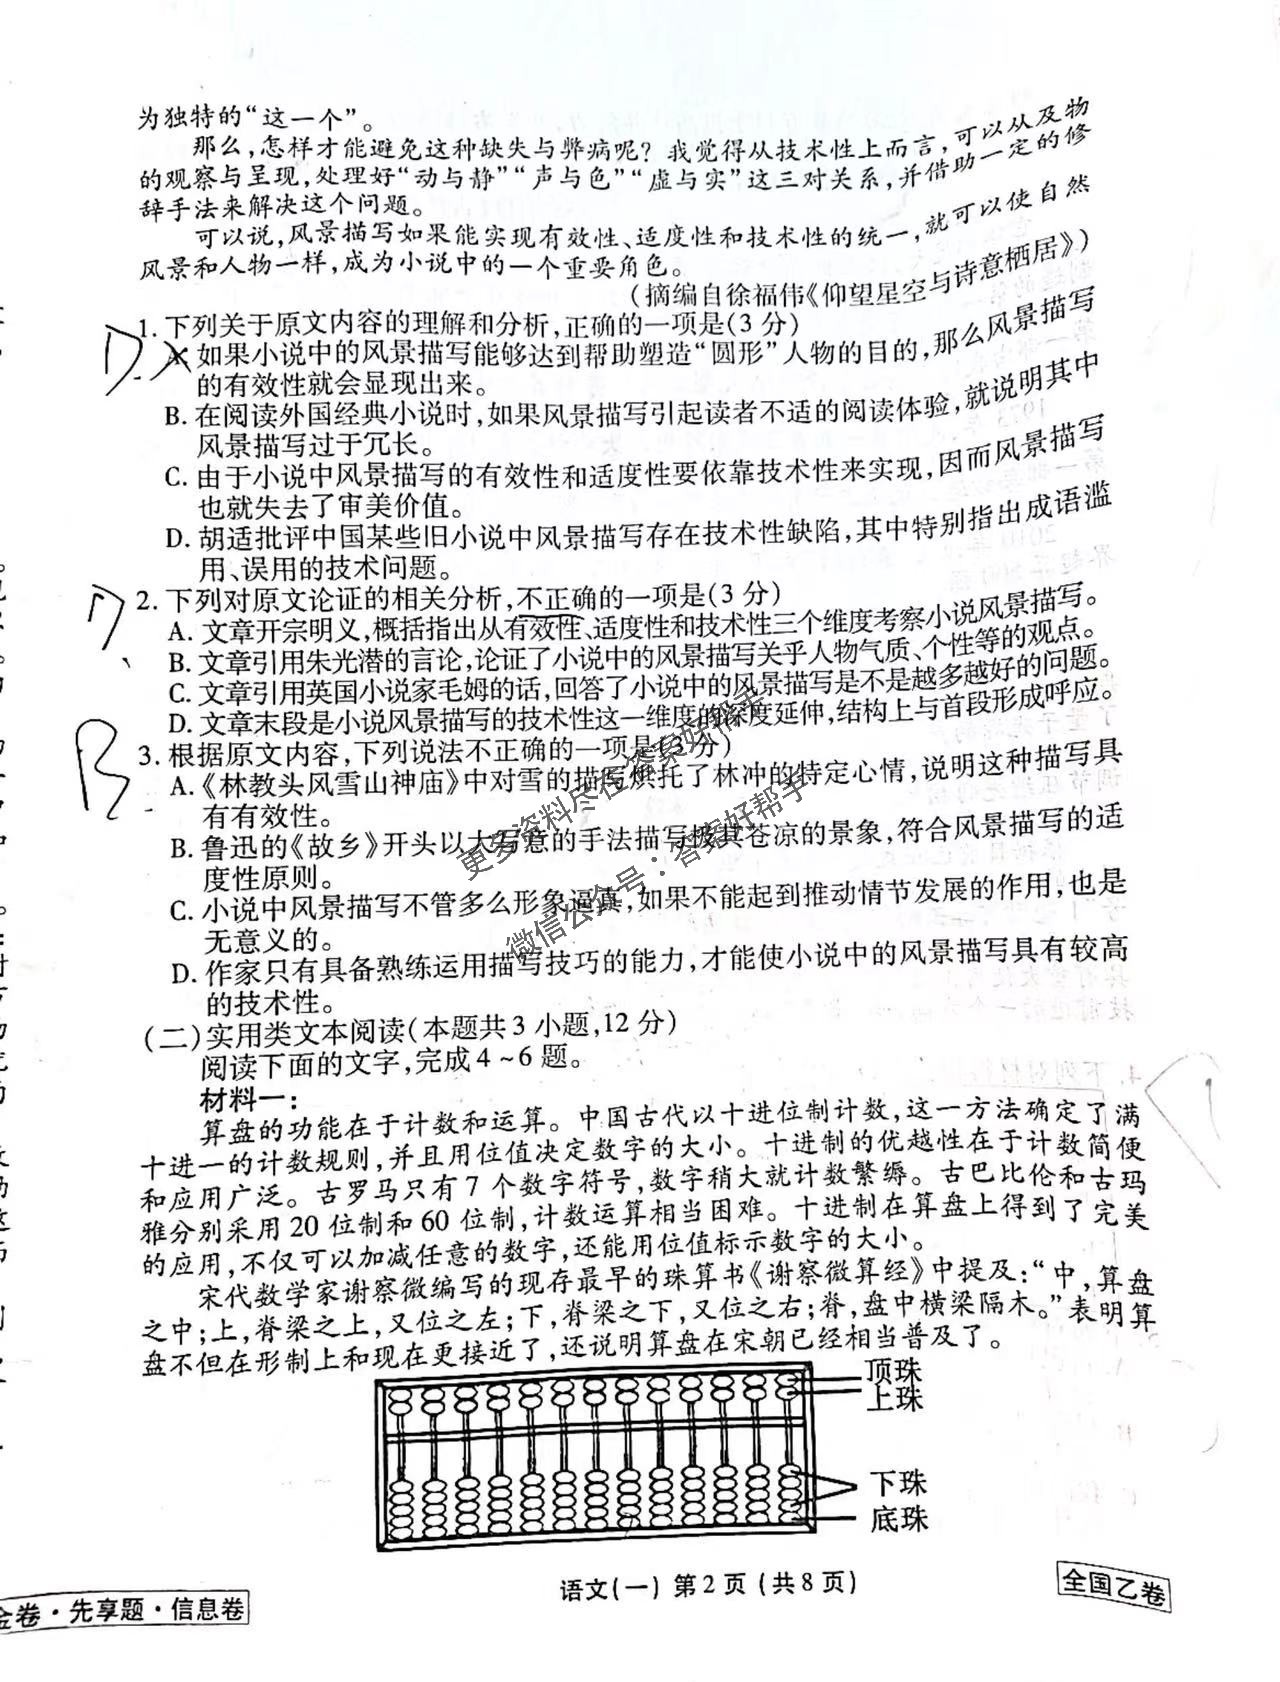 为独特的“这一个”。
那么,怎样才能避免这种缺失与弊病呢?我觉得从技术性上而言,可以从及物
的观察与呈现,处理好“动与静”“声与色”“虚与实”这三对关系,并借助一定的修
辞手法来解决这个问题。
可以说,风景描写如果能实现有效性、适度性和技术性的统一,就可以使自然
风景和人物一样,成为小说中的一个重要角色。
(摘编自徐福伟《仰望星空与诗意栖居》)
D. 1. 下列关于原文内容的理解和分析,正确的一项是(3分)
A. 如果小说中的风景描写能够达到帮助塑造“圆形”人物的目的,那么风景描写
的有效性就会显现出来。
B. 在阅读外国经典小说时,如果风景描写引起读者不适的阅读体验,就说明其中
风景描写过于冗长。
C. 由于小说中风景描写的有效性和适度性要依靠技术性来实现,因而风景描写
也就失去了审美价值。
D. 胡适批评中国某些旧小说中风景描写存在技术性缺陷,其中特别指出成语滥
用、误用的技术问题。
2. 下列对原文论证的相关分析,不正确的一项是(3分)
A. 文章开宗明义,概括指出从有效性、适度性和技术性三个维度考察小说风景描写。
B. 文章引用朱光潜的言论,论证了小说中的风景描写关乎人物气质、个性等的观点。
C. 文章引用英国小说家毛姆的话,回答了小说中的风景描写是不是越多越好的问题。
D. 文章末段是小说风景描写的技术性这一维度的深度延伸,结构上与首段形成呼应。
B 3. 根据原文内容,下列说法不正确的一项是(3分)
A.《林教头风雪山神庙》中对雪的描写烘托了林冲的特定心情,说明这种描写具
有有效性。
B. 鲁迅的《故乡》开头以大写意的手法描写极其苍凉的景象,符合风景描写的适
度性原则。
C. 小说中风景描写不管多么形象逼真,如果不能起到推动情节发展的作用,也是
无意义的。
D. 作家只有具备熟练运用描写技巧的能力,才能使小说中的风景描写具有较高
的技术性。
更多资料尽在答案好帮手
微信公众号:答案好帮手
(二)实用类文本阅读(本题共3小题,12分)
阅读下面的文字,完成4~6题。
材料一:
算盘的功能在于计数和运算。中国古代以十进位制计数,这一方法确定了满
十进一的计数规则,并且用位值决定数字的大小。十进制的优越性在于计数简便
和应用广泛。古罗马只有7个数字符号,数字稍大就计数繁缛。古巴比伦和古玛
雅分别采用20位制和60位制,计数运算相当困难。十进制在算盘上得到了完美
的应用,不仅可以加减任意的数字,还能用位值标示数字的大小。
宋代数学家谢察微编写的现存最早的珠算书《谢察微算经》中提及:“中,算盘
之中;上,脊梁之上,又位之左;下,脊梁之下,又位之右;脊,盘中横梁隔木。”表明算
盘不但在形制上和现在更接近了,还说明算盘在宋朝已经相当普及了。
顶珠
上珠
下珠
底珠
语文(一) 第2页(共8页)
全国乙卷
金卷·先享题·信息卷